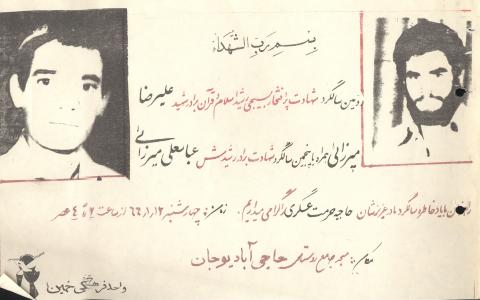 بسم رب الشهداء
دومین سالگرد شهادت پر افتخار بسیجی رشید اسلام و قرآن برادر شهید علیرضا
میرزائی همراه با پنجمین سالگرد شهادت برادر رشیدش عباسعلی میرزائی
را با یاد خاطره سالگرد مادر عزیزشان حاجیه حرمت عسگری گرامی میداریم. زمان: چهارشنبه ۶۶،۱،۱۲ از ساعت ۲ تا ۴ عصر
مکان: مسجد جامع روستای حاجی آباد یوجان
واحد فرهنگی خمین